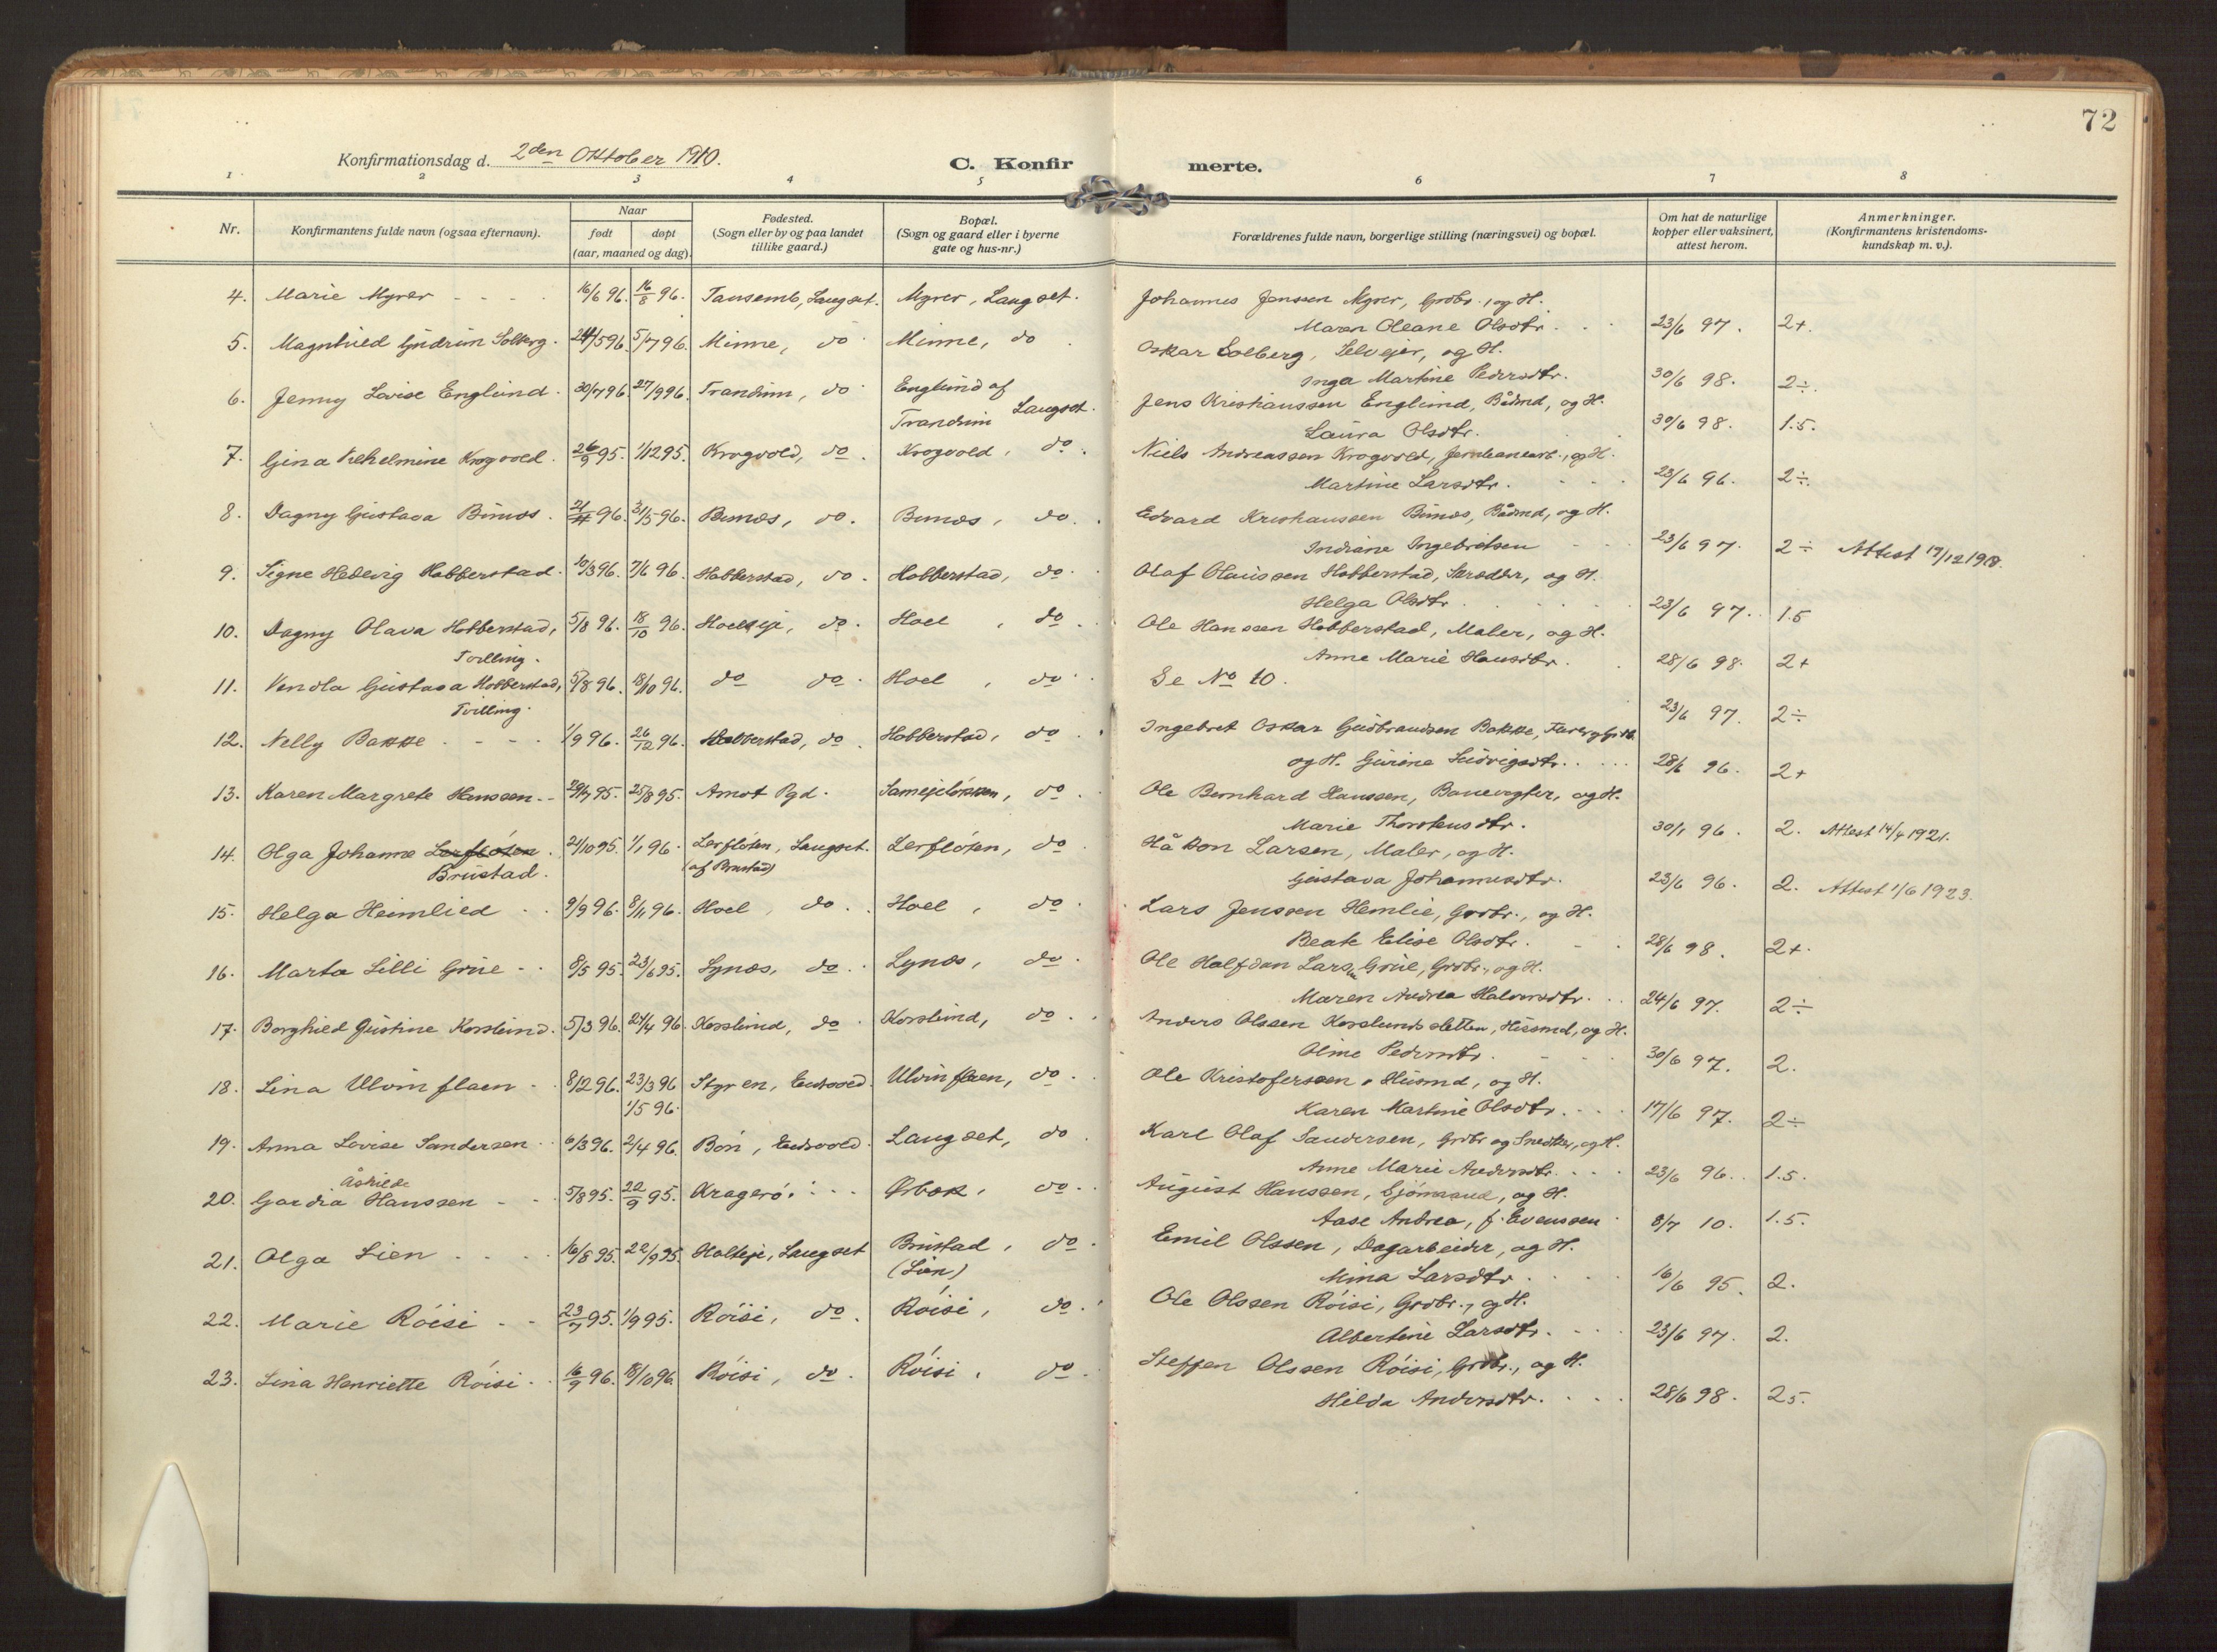 72
Konfirmationsdag d. 2den Oktober 1910.
C. Konfir merte.
1 2 3 4 5 6 7 8
Nr.
Konfirmantens fulde navn (ogsaa efternavn).
Naar
født døpt
(aar, maaned og dag).
Fødested.
(Sogn eller by og paa landet
tillike gaard.)
Bopæl.
(Sogn og gaard eller i byerne
gate og hus-nr.)
Forældrenes fulde navn, borgerlige stilling (næringsvei) og bopæl.
Om hat de naturlige
kopper eller vaksinert,
attest herom.
Anmerkninger.
(Konfirmantens kristendoms-
kundskap m. v.).
4. Marie Myrer 16/6 96. 16/8 96. Tausemb, Langset. Myrer, Langset. Johannes Jenssen Myrer, Grdbr., og H.
Maren Oleane Olsdtr. 23/6 97. 2+.
5. Magnhild Gudrun Solberg. 24/5 96. 5/7 96. Minne, do Minne, do Oskar Solberg, Selveier, og H.
Inga Martine Pedersdtr. 30/6 98. 2÷.
6. Jenny Lovise Englund. 30/7 96. 27/9 96. Trandum, do Englund af
Trandum Langset. Jens Kristianssen Englund, Bådmd, og H.
Laura Olsdtr. 30/6 98. 1.5.
7. Gina Vilhelmine Krogvold. 26/9 95. 1/12 95. Krogvold, do. Krogvold, do. Niels Andreassen Krogvold, Jernbanearb., og H.
Martine Larsdtr. 23/6 96. 2÷.
8. Dagny Gustava Bunæs. 21/4 96. 3/5 96. Bunæs, do. Bunæs, do. Edvard Kristianssen Bunæs, Bådmd, og H.
Indiane Ingebretsen 23/6 97. 2÷ Attest 17/12 1918.
9. Signe Hedevig Habberstad. 10/3 96. 7/6 96. Habberstad, do. Habberstad, do. Olaf Olaussen Habberstad, Skrædder, og H.
Helga Olsdtr. 23/6 97. 1.5
10. Dagny Olava Habberstad,
Tvilling. 5/8 96. 18/10 96. Hoelseje, do. Hoel, do. Ole Hanssen Habberstad, Maler, og H.
Anne Marie Hansdtr. 28/6 98. 2+
11. Vendla Gustava Habberstad,
Tvilling. 5/8 96. 18/10 96. do do. Hoel, do. Se No 10. 23/6 97. 2÷
12. Nelly Bakke 1/9 96. 26/12 96. Habberstad, do. Habberstad, do. Ingebret Oskar Gudbrandsen Bakke,
og H. Gurine Ludvigsdtr. 28/6 96. 2+
13. Karen Margrete Hanssen. 29/7 95. 25/8 95. Amot Pgd. do. Ole Bernhard Hanssen, Banevogter, og H.
Marie Thorstensdtr. 30/1 96. 2. Attest 14/4 1921.
14. Olga Johanne Lerfloten.
Brustad. 21/10 95. 1/1 96. Lerfløten, Langset.
(af Brustad) Lerfløten, do Håkon Larsen, Maler, og H.
Gustava Johannesdtr. 23/6 96. 2. Attest 1/6 1923.
15. Helga Heimlied 9/9 96. 8/11 96. Hoel, do. Hoel, do. Lars Jenssen Hemlie, Grdbr., og H.
Beate Elise Olsdtr. 28/6 98. 2+.
16. Marta Lilli Grue 8/5 95. 23/6 95. Lynæs, do. Lynæs, do. Ole Halfdan Larsen Grue, Grdbr., og H.
Maren Andrea Halvorsdtr. 24/6 97. 2÷
17. Borghild Justine Korslund. 5/3 96. 24/4 96. Korslund, do. Korslund, do. Anders Olssen Korslundssletten, Husmd, og H.
Oline Pedersdtr. 30/6 97. 2.
18. Lina Ulvinflaen 8/2 96. 23/3 96
1/5 96. Styren, Eidsvold. Ulvinflaen, do. Ole Kristoferssen, Husmd, og H.
Karen Martine Olsdtr. 17/6 97. 2÷
19. Anna Lovise Sandersen 6/3 96. 2/4 96. Bøn, Eidsvold. Langset, do Karl Olaf Sandersen, Grdbr og Snedker, og H.
Anne Marie Andersdtr. 23/6 96. 1.5.
20. Åshilde
Gardia Hanssen 5/8 95. 22/9 95. Kragerø. Ørbæk, do. August Hanssen, Sjømand, og H.
Aase Andrea, f. Evenssen 8/7 10. 1.5.
21. Olga Lien 16/8 95. 22/9 95. Holteje, Langset Brustad, do.
(Lien) Emil Olssen, Dagarbeider, og H.
Mina Larsdtr. 16/6 95. 2.
22. Marie Røisi 23/7 95. 1/9 95. Røisi, do. Røisi, do. Ole Olssen Røisi, Grdbr., og H.
Albertine Larsdtr. 23/6 97. 2.
23. Lina Henriette Røisi 16/9 96. 18/10 96. Røisi, do. Røisi, do. Steffen Olssen Røisi, Grdbr., og H.
Hilda Andersdtr. 28/6 98. 2 5.